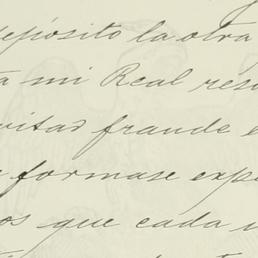 depósito la otra
a mi Real reso
vitar fraude e
formase expe
os que cada u